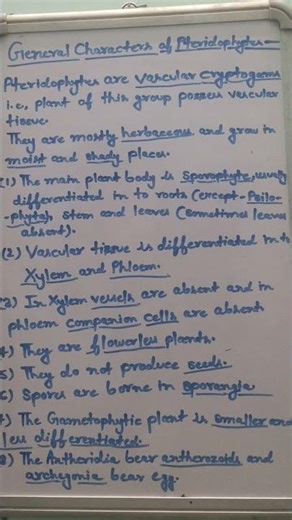 General Characters of Pteridophytes—
Pteridophytes are vascular cryptogams
i.e., plant of this group posses vascular
tissue.
They are mostly herbaceous and grow in
moist and shady places.
(1) The main plant body is sporophyte, usually
differentiated in to roots (except - Psilo-
-phyta), stem and leaves (sometimes leaves
absent).
(2) Vascular tissue is differentiated in to
Xylem and Phloem.
(3) In Xylem vessels are absent and in
phloem companion cells are absent
4) They are flowerless plants.
5) They do not produce seeds.
6) Spores are borne in sporangia
7) The Gametophytic plant is smaller and
less differentiated.
8) The Antheridia bear antherozoids and
archegonia bear egg.